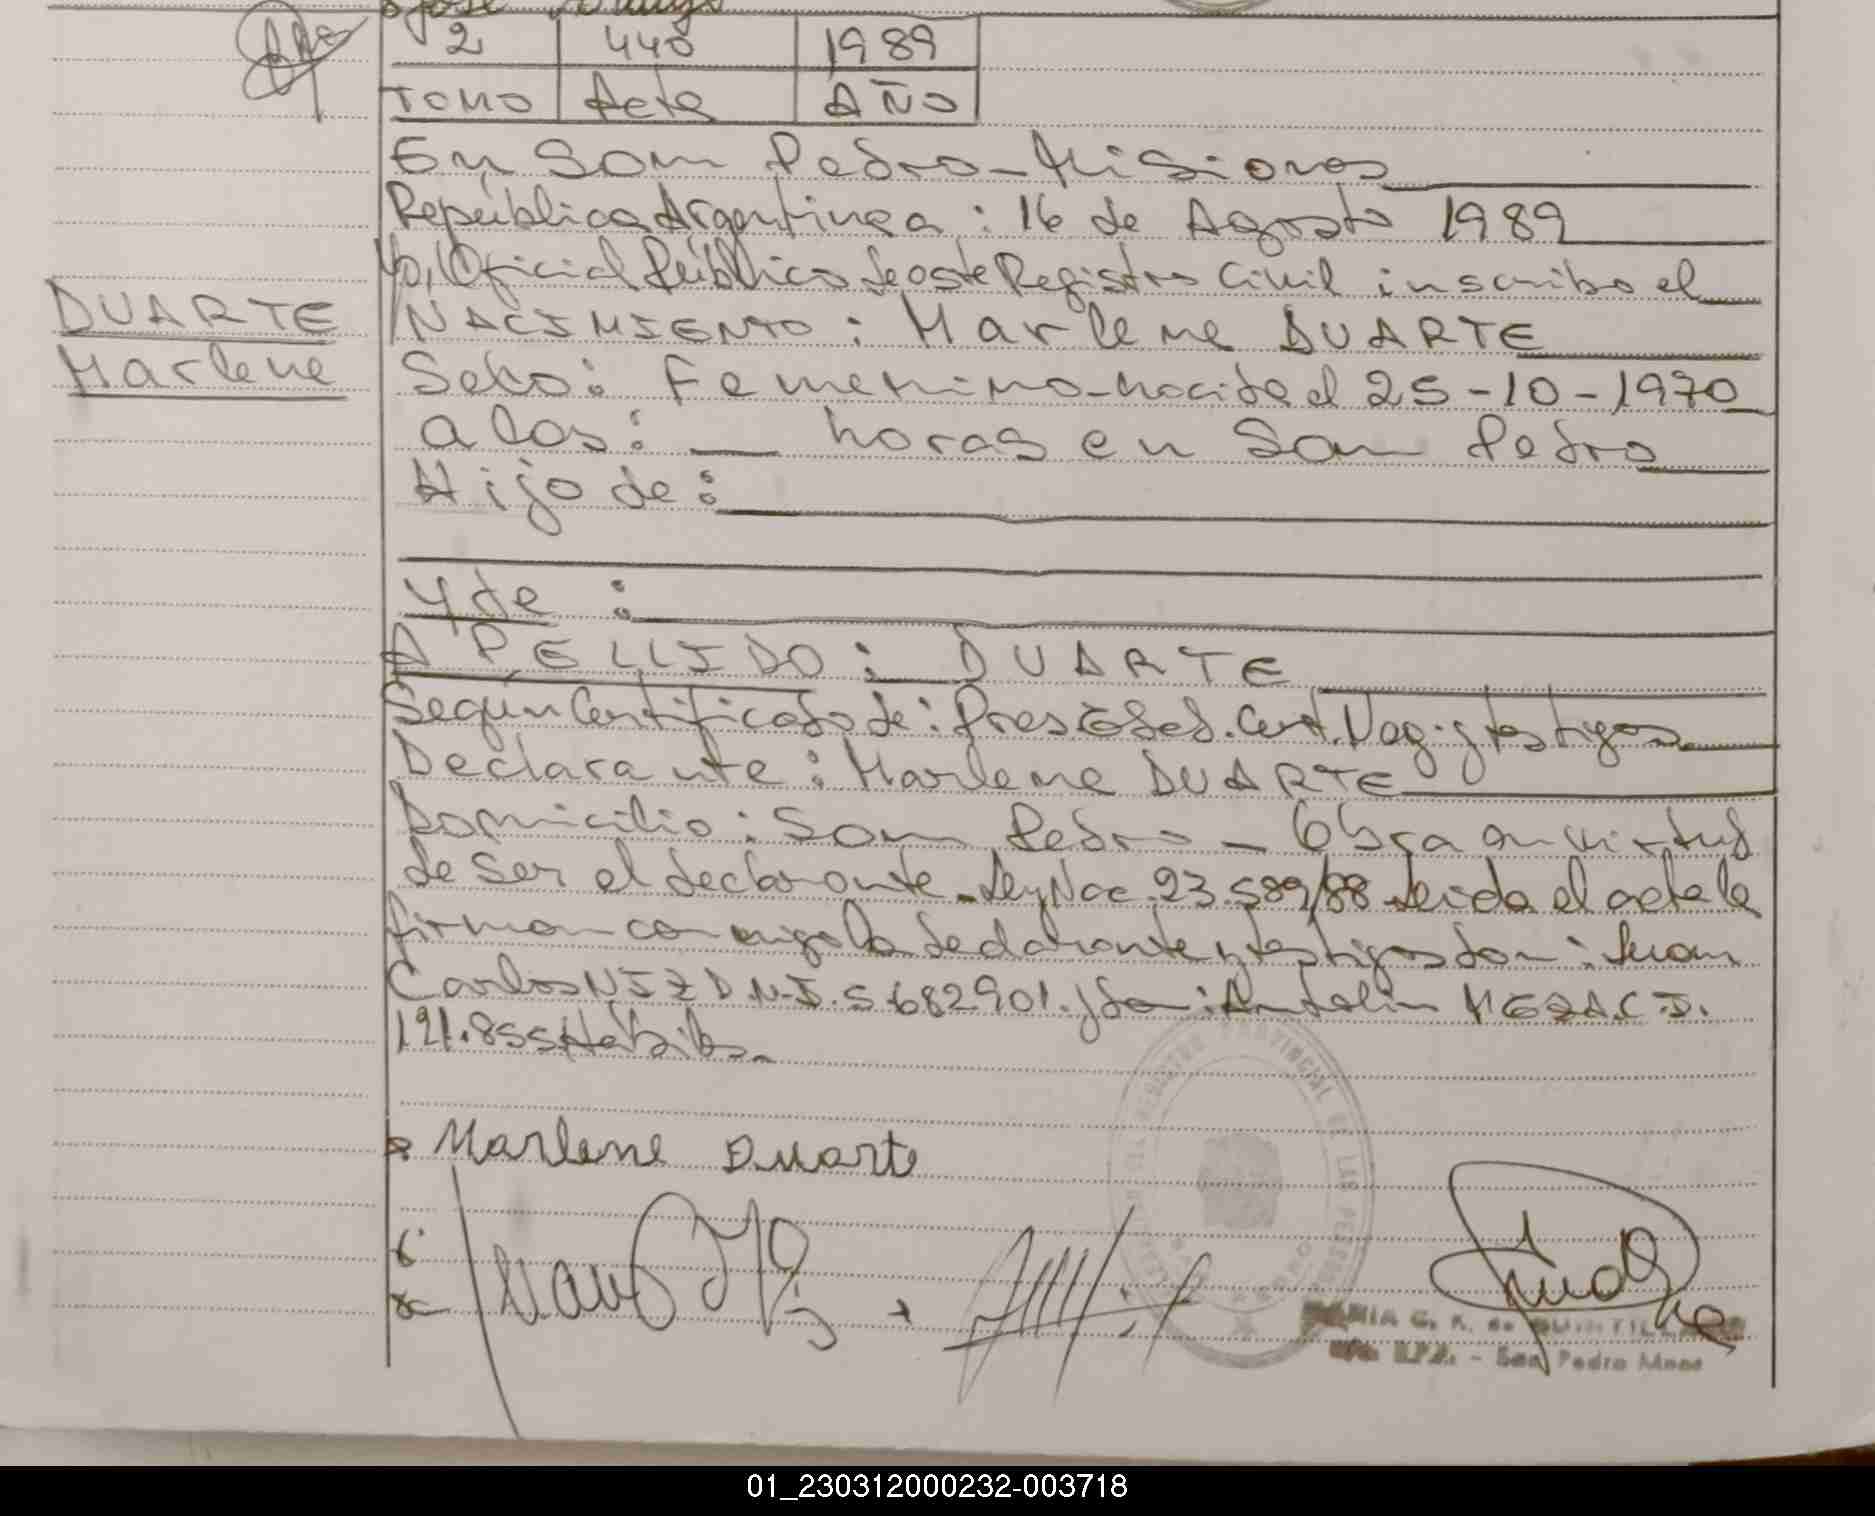 José
2 440 1989
TOMO Acta AÑO
En San Pedro - Misiones
República Argentina a: 16 de Agosto 1989
Yo, Oficial Público de este Registro Civil inscribo el
DUARTE
Marlene
NACIMIENTO: Marlene DUARTE
Sexo: Femenino - nacida el 25-10-1970
a las: horas en San Pedro
Hijo de:
y de:
APELLIDO: DUARTE
Según Certificado de: Pres. Edad. Cert. Neg. y testigos
Declarante: Marlene DUARTE
Domicilio: San Pedro - Obra en virtud
de ser el declarante. Ley Nac. 23.589/88 Leida el acta la
firman conmigo la declarante y testigos don: Juan
Carlos NIZ D.N.I. 5.682901. y don: Antolin MEZA C.I.
191.855 Hábiles.
Marlene Duarte
REGISTRO PROVINCIAL DE LAS PERSONAS
MARIA G. K. de QUINTILLAN
R.P.P. - San Pedro Mnes
01_230312000232-003718